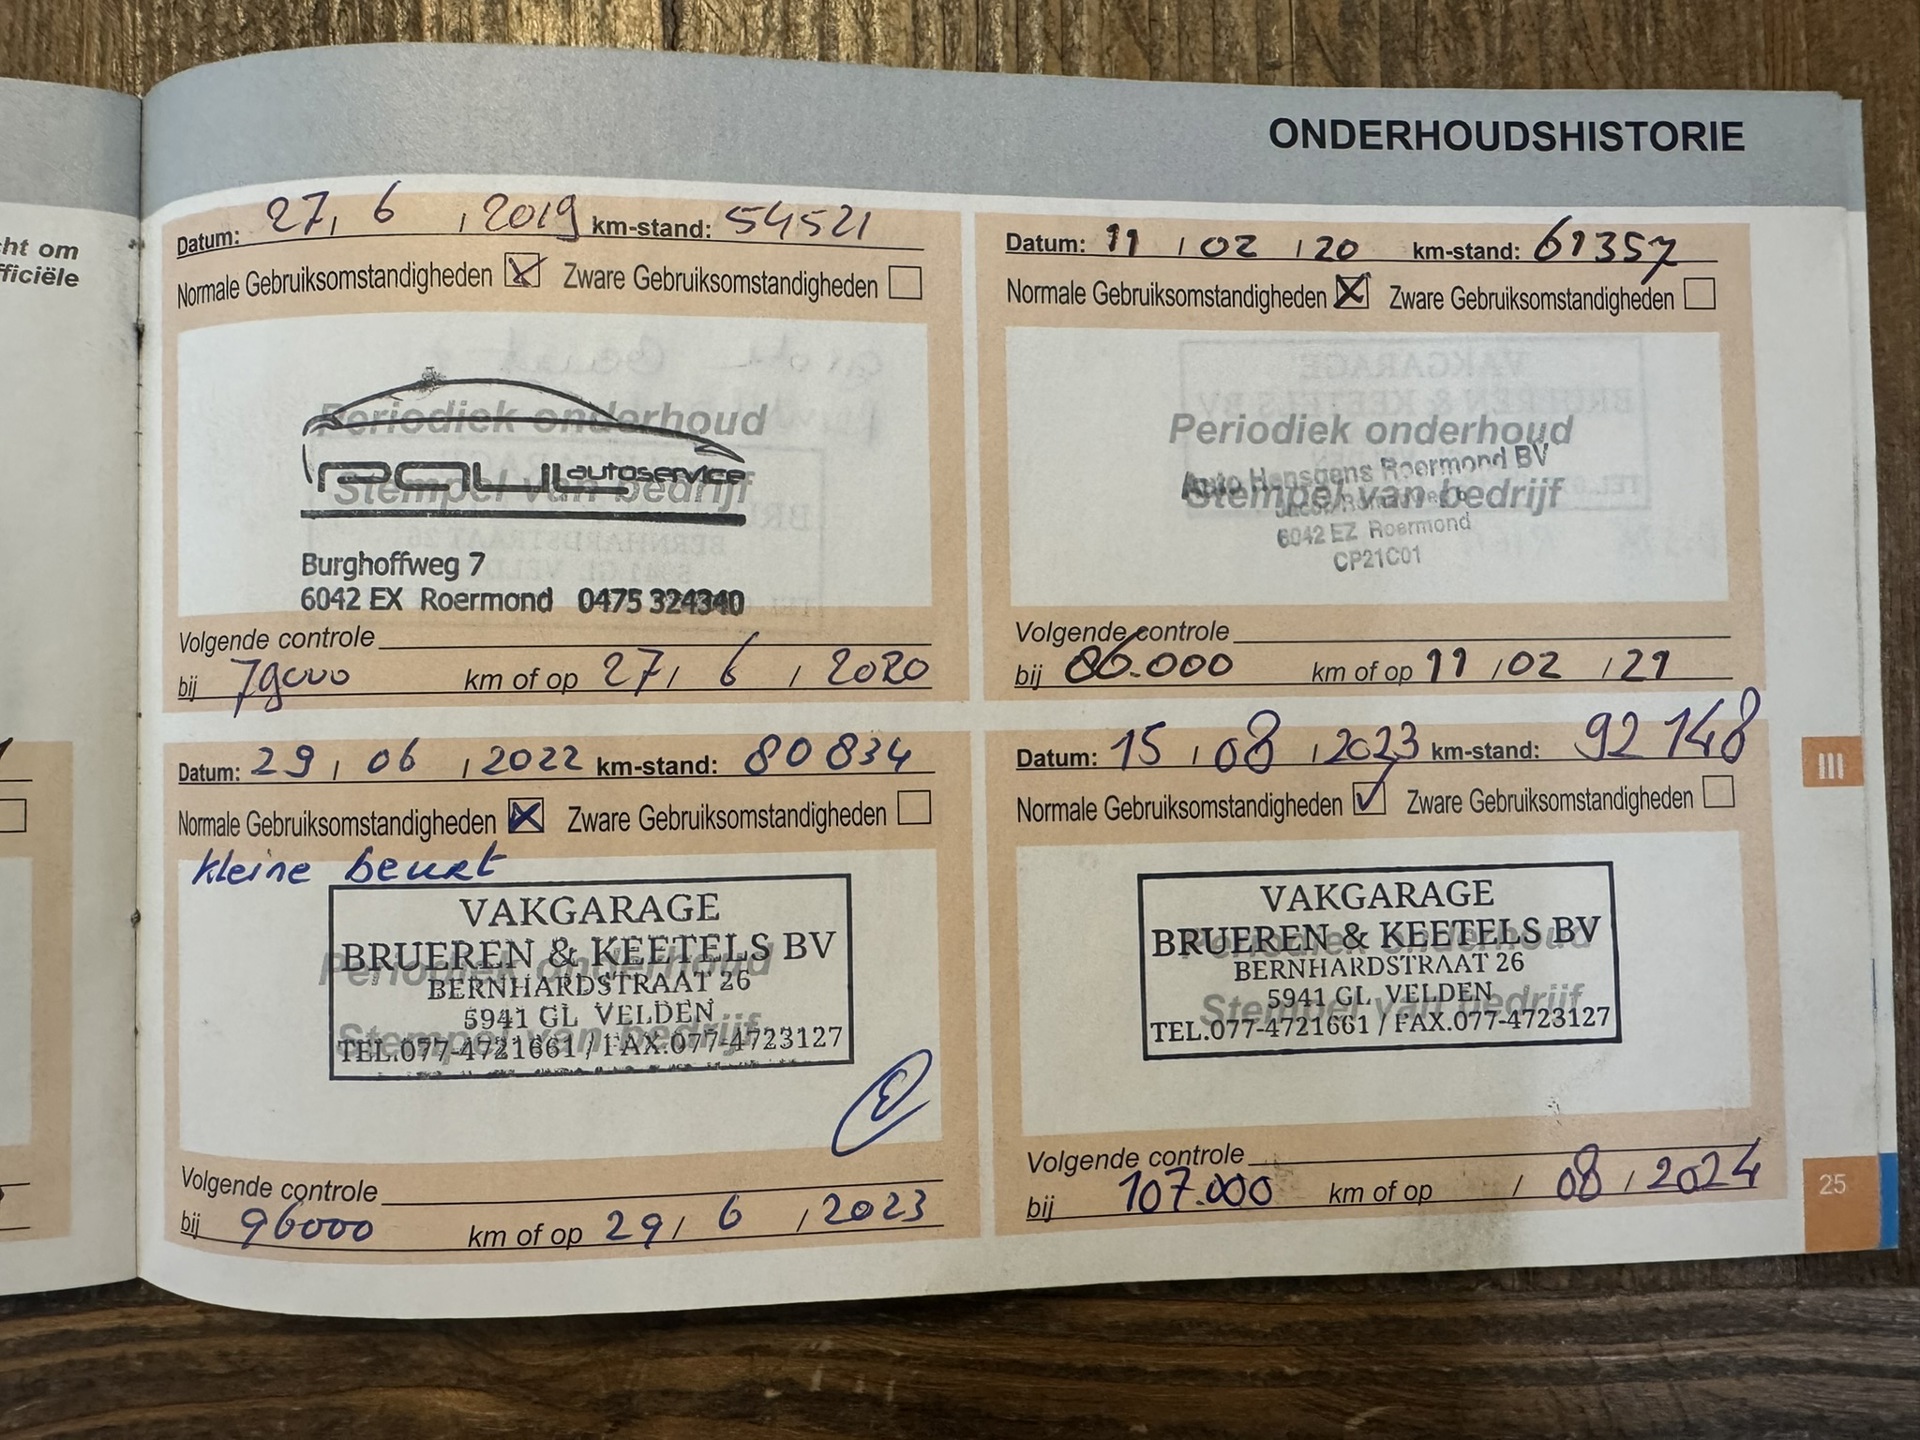 cht om
fficiële
ONDERHOUDSHISTORIE
Datum: 27 / 6 / 2019 km-stand: 54521
Normale Gebruiksomstandigheden Zware Gebruiksomstandigheden
Periodiek onderhoud
PAUL autoservice
Stempel van bedrijf
Burghoffweg 7
6042 EX Roermond 0475 324340
Volgende controle
bij 79000 km of op 27 / 6 / 2020
Datum: 11 / 02 / 20 km-stand: 61357
Normale Gebruiksomstandigheden Zware Gebruiksomstandigheden
Periodiek onderhoud
Auto Hensgens Roermond BV
Stempel van bedrijf
6042 EZ Roermond
CP21C01
Volgende controle
bij 86.000 km of op 11 / 02 / 21
Datum: 29 / 06 / 2022 km-stand: 80834
Normale Gebruiksomstandigheden Zware Gebruiksomstandigheden
kleine beurt
VAKGARAGE
BRUEREN & KEETELS BV
Periodiek onderhoud
BERNHARDSTRAAT 26
5941 GL VELDEN
Stempel van bedrijf
TEL.077-4721661 / FAX.077-4723127
Volgende controle
bij 96000 km of op 29 / 6 / 2023
Datum: 15 / 08 / 2023 km-stand: 92148
Normale Gebruiksomstandigheden Zware Gebruiksomstandigheden
VAKGARAGE
BRUEREN & KEETELS BV
Periodiek onderhoud
BERNHARDSTRAAT 26
5941 GL VELDEN
Stempel van bedrijf
TEL.077-4721661 / FAX.077-4723127
Volgende controle
bij 107.000 km of op / 08 / 2024
III
25